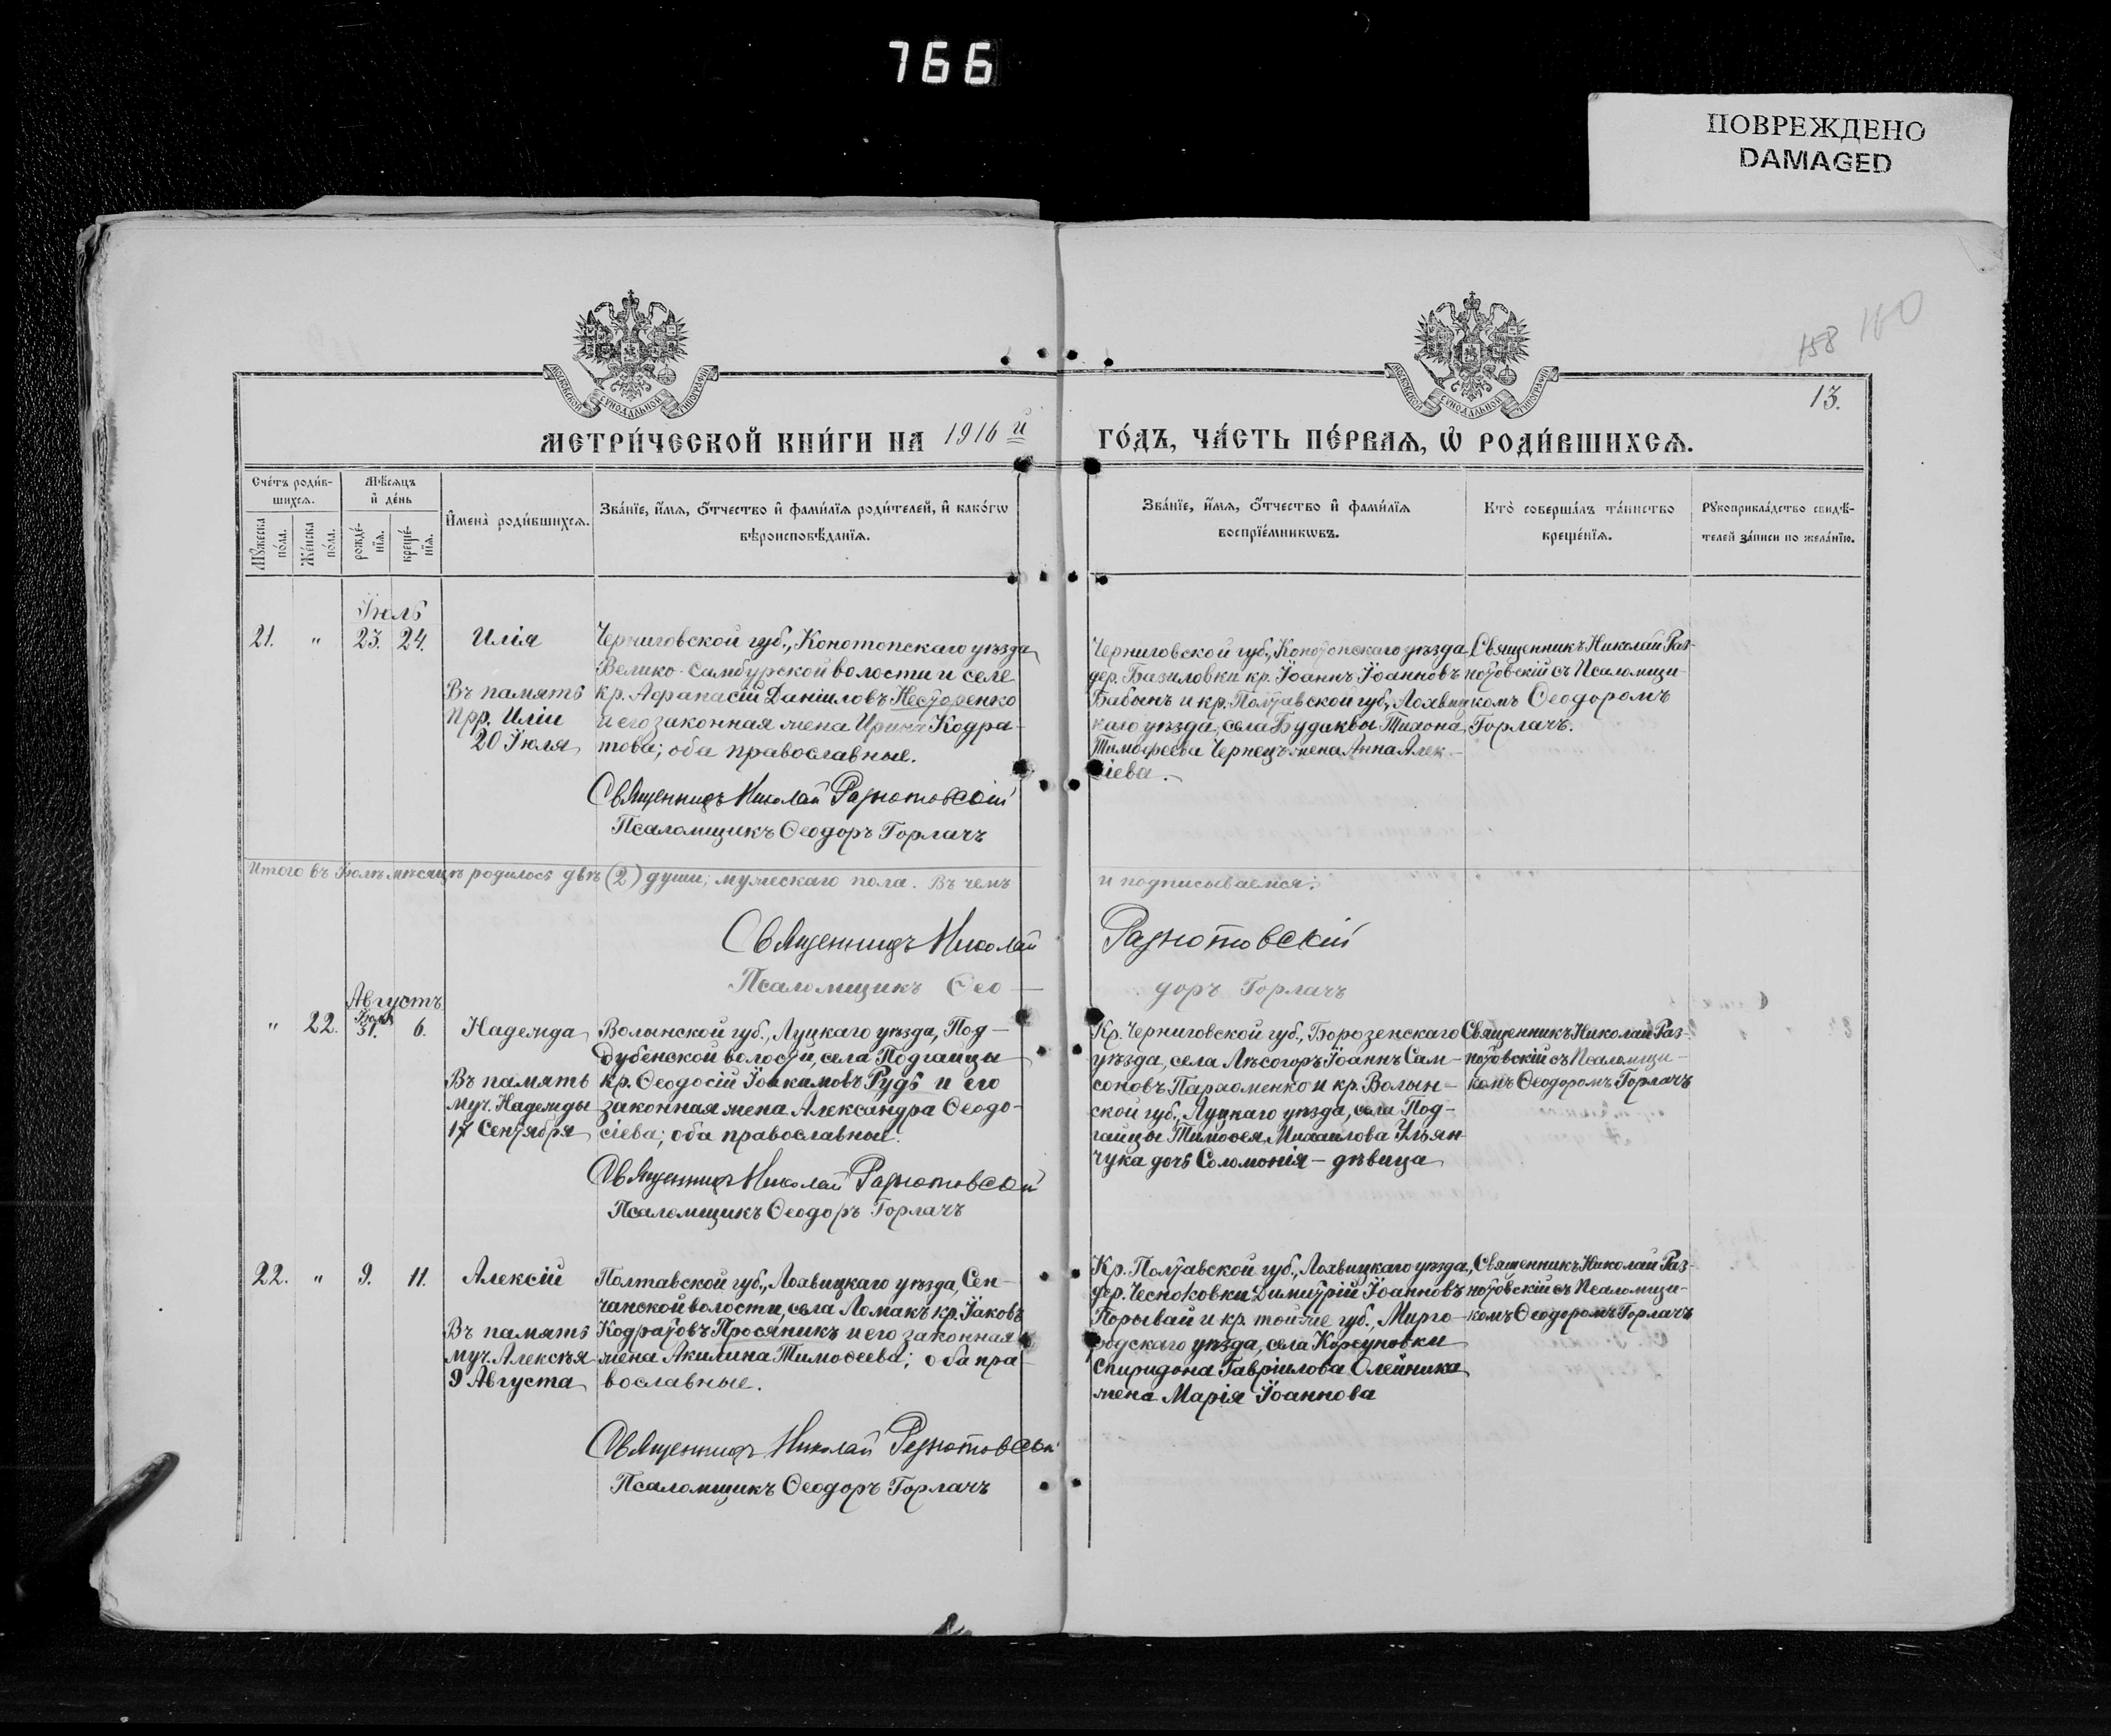 766
ПОВРЕЖДЕНО
DAMAGED
158 160
13.
МОСКОВСКОЙ СѴНОДАЛЬНОЙ ТИПОГРАФІИ
МОСКОВСКОЙ СѴНОДАЛЬНОЙ ТИПОГРАФІИ
МЕТРИ́ЧЕСКОЙ КНИ́ГИ НА 1916 й
ГО́ДЪ, ЧА́СТЬ ПЕ́РВАѦ, Ѡ҆ РОДИ́ВШИХСѦ.
Сче́тъ роди́в-
шихсѧ.
Мꙋ́жеска
по́ла.
Же́нска
по́ла.
Мѣ́сѧцъ
и҆ де́нь
рожде́-
нїѧ.
креще́-
нїѧ.
И҆мена̀ роди́вшихсѧ.
Зва́нїе, и҆́мѧ, ѻ҆́тчество и҆ фами́лїѧ роди́телей, и҆ како́гѡ
вѣроисповѣ́данїѧ.
Зва́нїе, и҆́мѧ, ѻ҆́тчество и҆ фами́лїѧ
воспрїе́мникѡвъ.
Кто̀ соверша́лъ та́инство
креще́нїѧ.
Рꙋкоприкла́дство свидѣ́-
телей за́писи по жела́нїю.
Іюль
21. " 23. 24. Илія
Въ память
прр. Иліи
20 Іюля
Черниговской губ., Конотопскаго уѣзда
Велико-Самбурской волости и селе
кр. Афанасій Даніиловъ Несторенко
и его законная жена Ирина Кодра-
това; оба православные.
Священникъ Николай Разнотовскій
Псаломщикъ Ѳеодоръ Горлачъ
Черниговской губ., Конотопскаго уѣзда
дер. Базиловки кр. Іоаннъ Іоанновъ
Бабынъ и кр. Полтавской губ., Лохвиц
каго уѣзда, села Будаквы Тихона
Тимоѳеева Чернецъ жена Анна Алек-
сіева.
Священникъ Николай Раз-
нотовскій съ Псаломщи-
комъ Ѳеодоромъ
Горлачъ.
Итого въ Іюлѣ мѣсяцѣ родилось двѣ (2) души; мужескаго пола. Въ чемъ
и подписываемся:
Священникъ Николай Разнотовскій
Псаломщикъ Ѳео-
доръ Горлачъ
Августъ
" 22. Іюля 31. 6. Надежда
Въ память
муч. Надежды
17 Сентября
Волынской губ., Луцкаго уѣзда, Под-
дубенской волости, села Подгайцы
кр. Ѳеодосій Іоакимовъ Рудь и его
законная жена Александра Ѳеодо-
сіева; оба православные.
Священникъ Николай Разнотовскій
Псаломщикъ Ѳеодоръ Горлачъ
Кр. Черниговской губ., Борозенскаго
уѣзда, села Лѣсогоръ Іоаннъ Сам-
соновъ Пархоменко и кр. Волын-
ской губ., Луцкаго уѣзда, села Под-
гайцы Тимоѳея Михаилова Ульян-
чука дочь Соломонія - дѣвица
Священникъ Николай Раз-
нотовскій съ Псаломщи-
комъ Ѳеодоромъ Горлачъ
22. " 9. 11. Алексій
Въ память
муч. Алексѣя
9 Августа
Полтавской губ., Лохвицкаго уѣзда, Сен-
чанской волости, села Ломакъ кр. Іаковъ
Кодратовъ Просяникъ и его законная
жена Акилина Тимоѳеева; оба пра-
вославные.
Священникъ Николай Разнотовскій
Псаломщикъ Ѳеодоръ Горлачъ
Кр. Полтавской губ., Лохвицкаго уѣзда,
дер. Чесноковки Димитрій Іоанновъ
Порывай и кр. той же губ., Мирго-
родскаго уѣзда, села Корсуновки
Спиридона Гавріилова Олейника
жена Марія Іоаннова
Священникъ Николай Раз-
нотовскій съ Псаломщи-
комъ Ѳеодоромъ Горлачъ